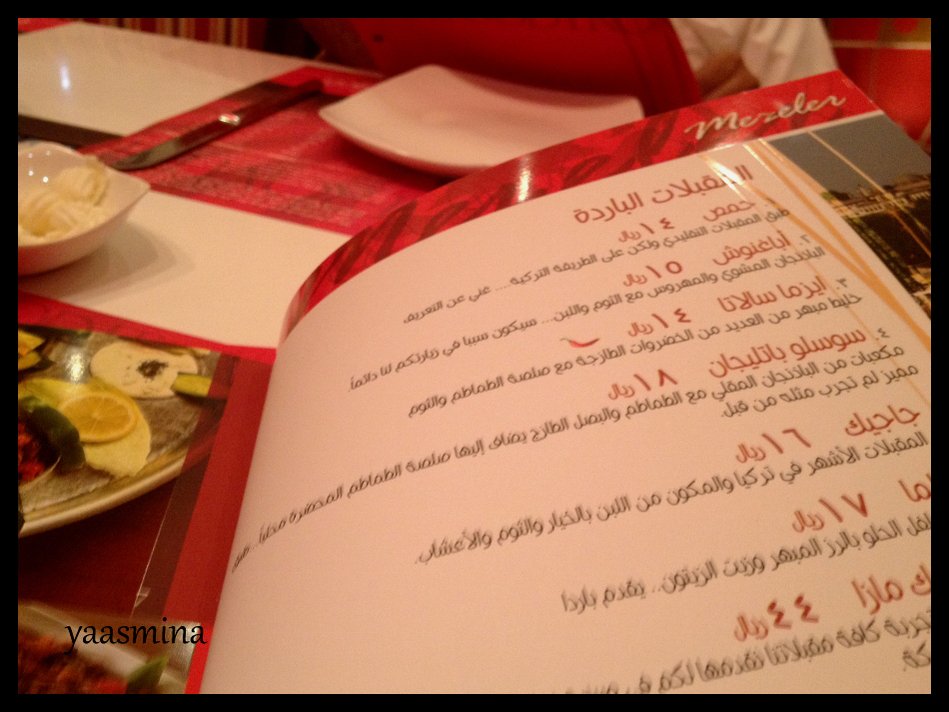 Mezeler
المقبلات الباردة
حمص ١٤ ريال
طبق المقبلات التقليدي ولكن على الطريقة التركية... غني عن التعريف
٢. أباغنوش ١٥ ريال
الباذنجان المشوي والمهروس مع الثوم واللبن... سيكون سببا في زيارتكم لنا دائماً
٣. ايزما سالاتا ١٤ ريال
خليط مبهر من العديد من الخضروات الطازجة مع صلصة الطماطم والثوم
٤. سوسلو باتليجان ١٨ ريال
مكعبات من الباذنجان المقلي مع الطماطم والبصل الطازج يضاف إليها صلصة الطماطم المحضرة محلياً...
مميز لم تجرب مثله من قبل.
جاجيك ١٦ ريال
المقبلات الأشهر في تركيا والمكون من اللبن بالخيار والثوم والأعشاب.
١٧ ريال
الحلو بالرز المبهر وزيت الزيتون.. يقدم باردا
مازا ٤٤ ريال
كافة مقبلاتنا نقدمها لكم في
yaasmina